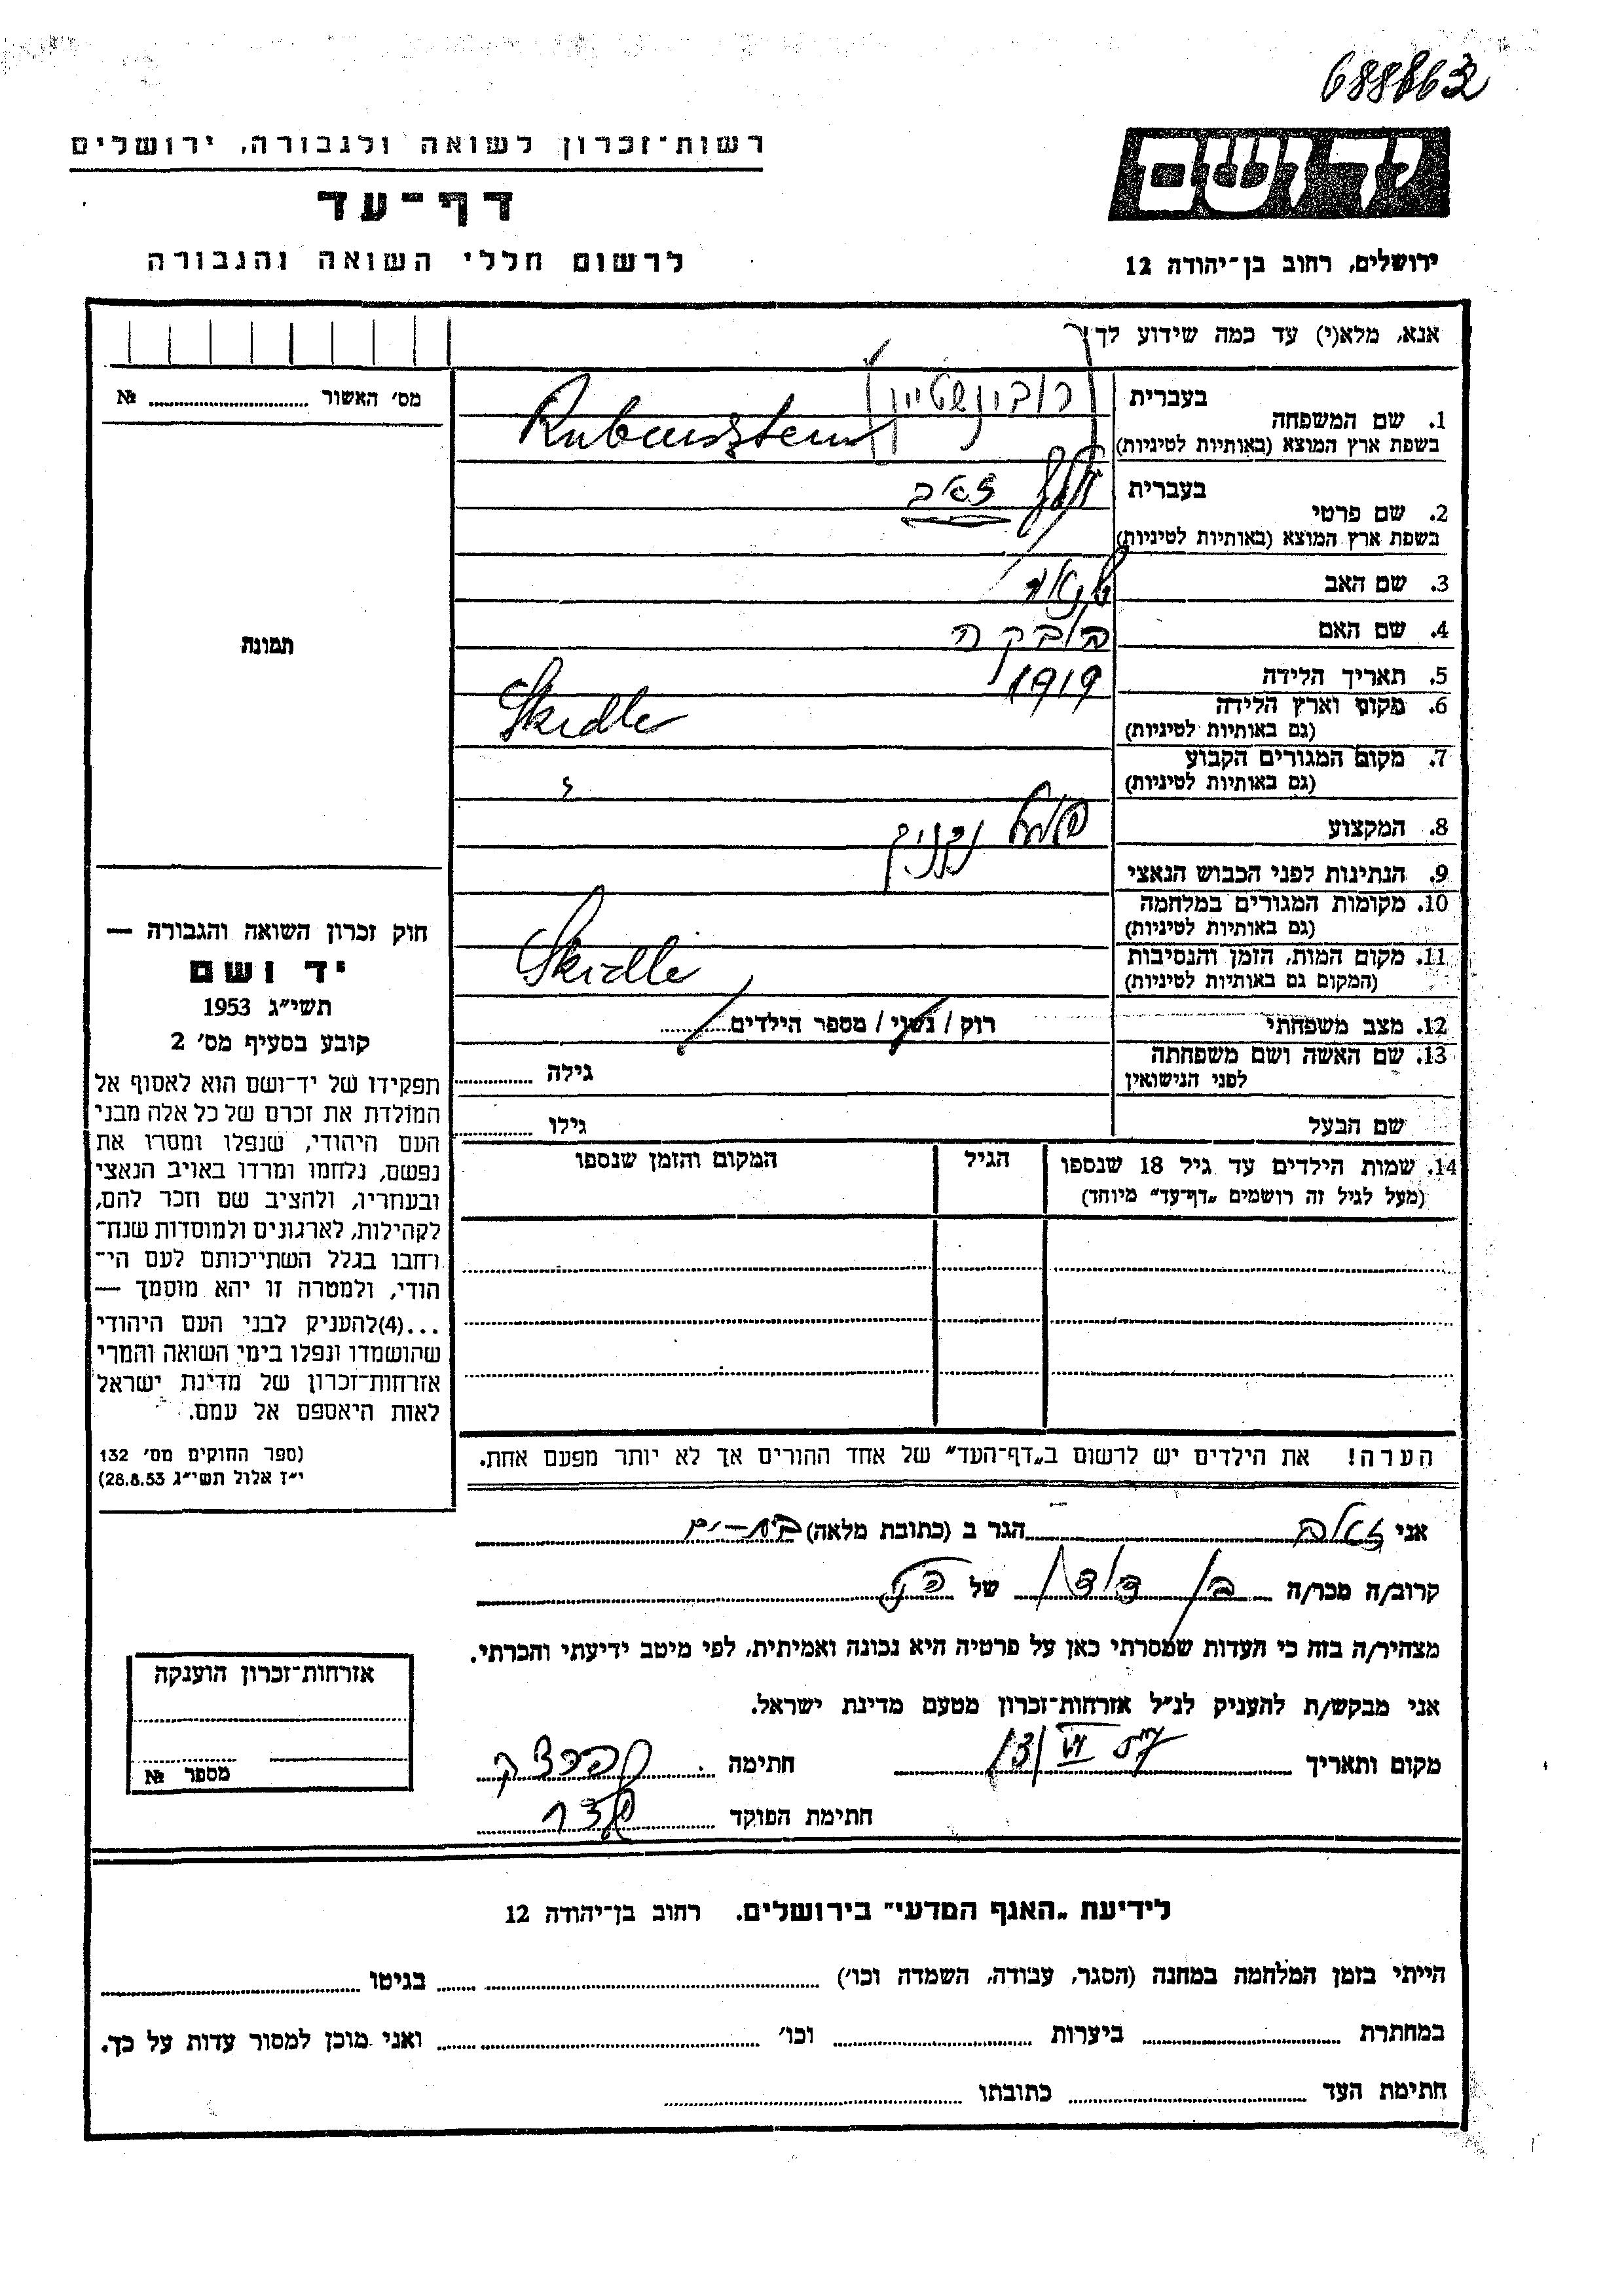 688863
רשות־זכרון לשואה ולגבורה, ירושלים
דף־עד
לרשום חללי השואה והגבורה
ידושם
ירושלים, רחוב בן־יהודה 12
אנא, מלא(י) עד כמה שידוע לך:
מס' האשור № 
תמונה
חוק זכרון השואה והגבורה —
יד ושם
תשי״ג 1953
קובע בסעיף מס' 2
תפקידו של יד־ושם הוא לאסוף אל
המולדת את זכרם של כל אלה מבני
העם היהודי, שנפלו ומסרו את
נפשם, נלחמו ומרדו באויב הנאצי
ובעוזריו, ולהציב שם וזכר להם,
לקהילות, לארגונים ולמוסדות שנח־
רחבו בגלל השתייכותם לעם הי־
הודי, ולמטרה זו יהא מוסמך —
...(4)להעניק לבני העם היהודי
שהושמדו ונפלו בימי השואה והמרי
אזרחות־זכרון של מדינת ישראל
לאות היאספם אל עמם.
(ספר החוקים מס' 132
י״ז אלול תשי״ג 28.8.53)
1. שם המשפחה
בעברית רובינשטיין
בשפת ארץ המוצא (באותיות לטיניות) Rubensztein
2. שם פרטי
בעברית זאב
בשפת ארץ המוצא (באותיות לטיניות)
3. שם האב
4. שם האם
5. תאריך הלידה 1919
6. מקום וארץ הלידה
(גם באותיות לטיניות) Skidle
7. מקום המגורים הקבוע
(גם באותיות לטיניות)
8. המקצוע
9. הנתינות לפני הכבוש הנאצי
10. מקומות המגורים במלחמה
(גם באותיות לטיניות)
11. מקום המות, הזמן והנסיבות
(המקום גם באותיות לטיניות) Skidle
12. מצב משפחתי רוק / נשוי / מספר הילדים
13. שם האשה ושם משפחתה
לפני הנישואין גילה
שם הבעל גילו
14. שמות הילדים עד גיל 18 שנספו הגיל המקום והזמן שנספו
(מעל לגיל זה רושמים „דף־עד״ מיוחד)
הערה! את הילדים יש לרשום ב„דף־העד״ של אחד ההורים אך לא יותר מפעם אחת.
אני זאב הגר ב (כתובת מלאה) בת-ים
קרוב/ה מכר/ה בן דודן של הנ״
מצהיר/ה בזה כי העדות שמסרתי כאן על פרטיה היא נכונה ואמיתית, לפי מיטב ידיעתי והכרתי.
אני מבקש/ת להעניק לנ״ל אזרחות־זכרון מטעם מדינת ישראל.
מקום ותאריך 13/VI חתימה
חתימת הפוקד
אזרחות־זכרון הוענקה
מספר №
לידיעת „האגף המדעי״ בירושלים. רחוב בן־יהודה 12
הייתי בזמן המלחמה במחנה (הסגר, עבודה, השמדה וכו') בגיטו
במחתרת ביערות וכו' ואני מוכן למסור עדות על כך.
חתימת העד כתובתו